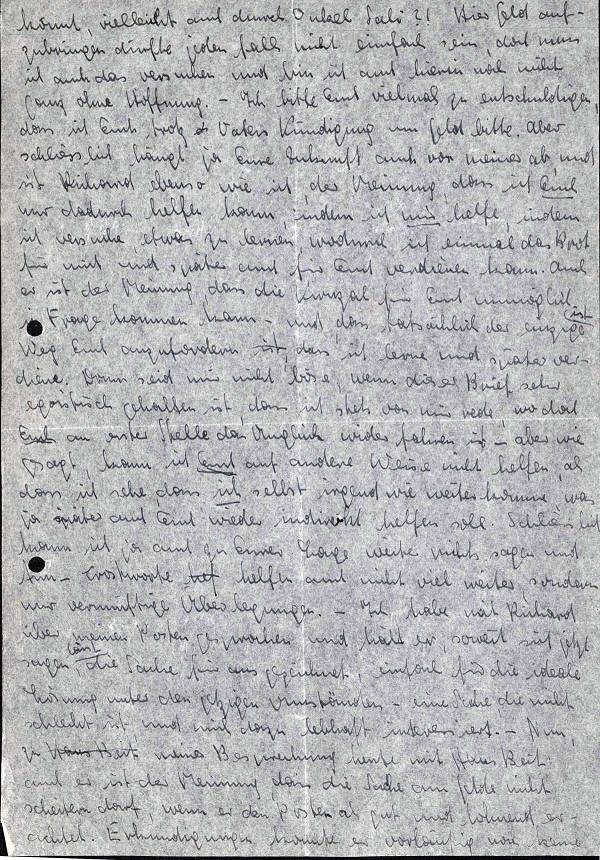 könnt, vielleicht auch durch Onkel Salo?! Hier Geld auf-
zubringen dürfte jeden falls nicht einfach sein, doch muss
ich auch das versuchen und bin ich auch hierin noch nicht
ganz ohne Hoffnung. - Ich bitte Euch vielmals zu entschuldigen,
dass ich Euch trotz Vaters Kündigung um Geld bitte. Aber
schliesslich hängt ja Eure Zukunft auch von meiner ab, und
ist Richard ebenso wie ich, der Meinung, dass ich Euch
nur dadurch helfen kann, indem ich mir helfe, indem
ich versuche etwas zu lernen, wodurch ich einmal das Brot
für mich und später auch für Euch verdienen kann. Auch
er ist der Meinung, dass die für Euch unmöglich
in Frage kommen kann - und dass tatsächlich der einzige
Weg Euch anzufordern ist, dass ich lerne und später ver-
diene. Drum seid mir nicht böse, wenn dieser Brief sehr
egoistisch gehalten ist, dass ich stets von mir rede, wo doch
Euch an erster Stelle das Unglück widerfahren ist - aber wie
gesagt, kann ich Euch auf andere Weise nicht helfen, als
dass ich sehe dass ich selbst irgendwie weiterkomme, was
ja später auch Euch wieder indirekt helfen soll. Schliesslich
kann ich ja auch zu Eurer Lage weiter nichts sagen und
tun - Trostworte helfen auch nicht viel weiter, sondern
nur vernünftige Überlegungen. - Ich habe mit Richard
über meinen Posten gesprochen und hält er, soweit sich jetzt
sagen lässt, die Sache für ausgezeichnet, einfach für die ideale
Lösung unter den jetzigen Umständen - eine Sache, die nicht
schlecht ist und mich dazu lebhaft interessiert. - Nun,
zu meiner Besprechung heute mit Hans Beit:
auch er ist der Meinung, dass die Sache am Gelde nicht
scheitern darf, wenn er den Posten als gut und lohnend er-
achtet. Erkundigungen konnte er vorläufig noch keine